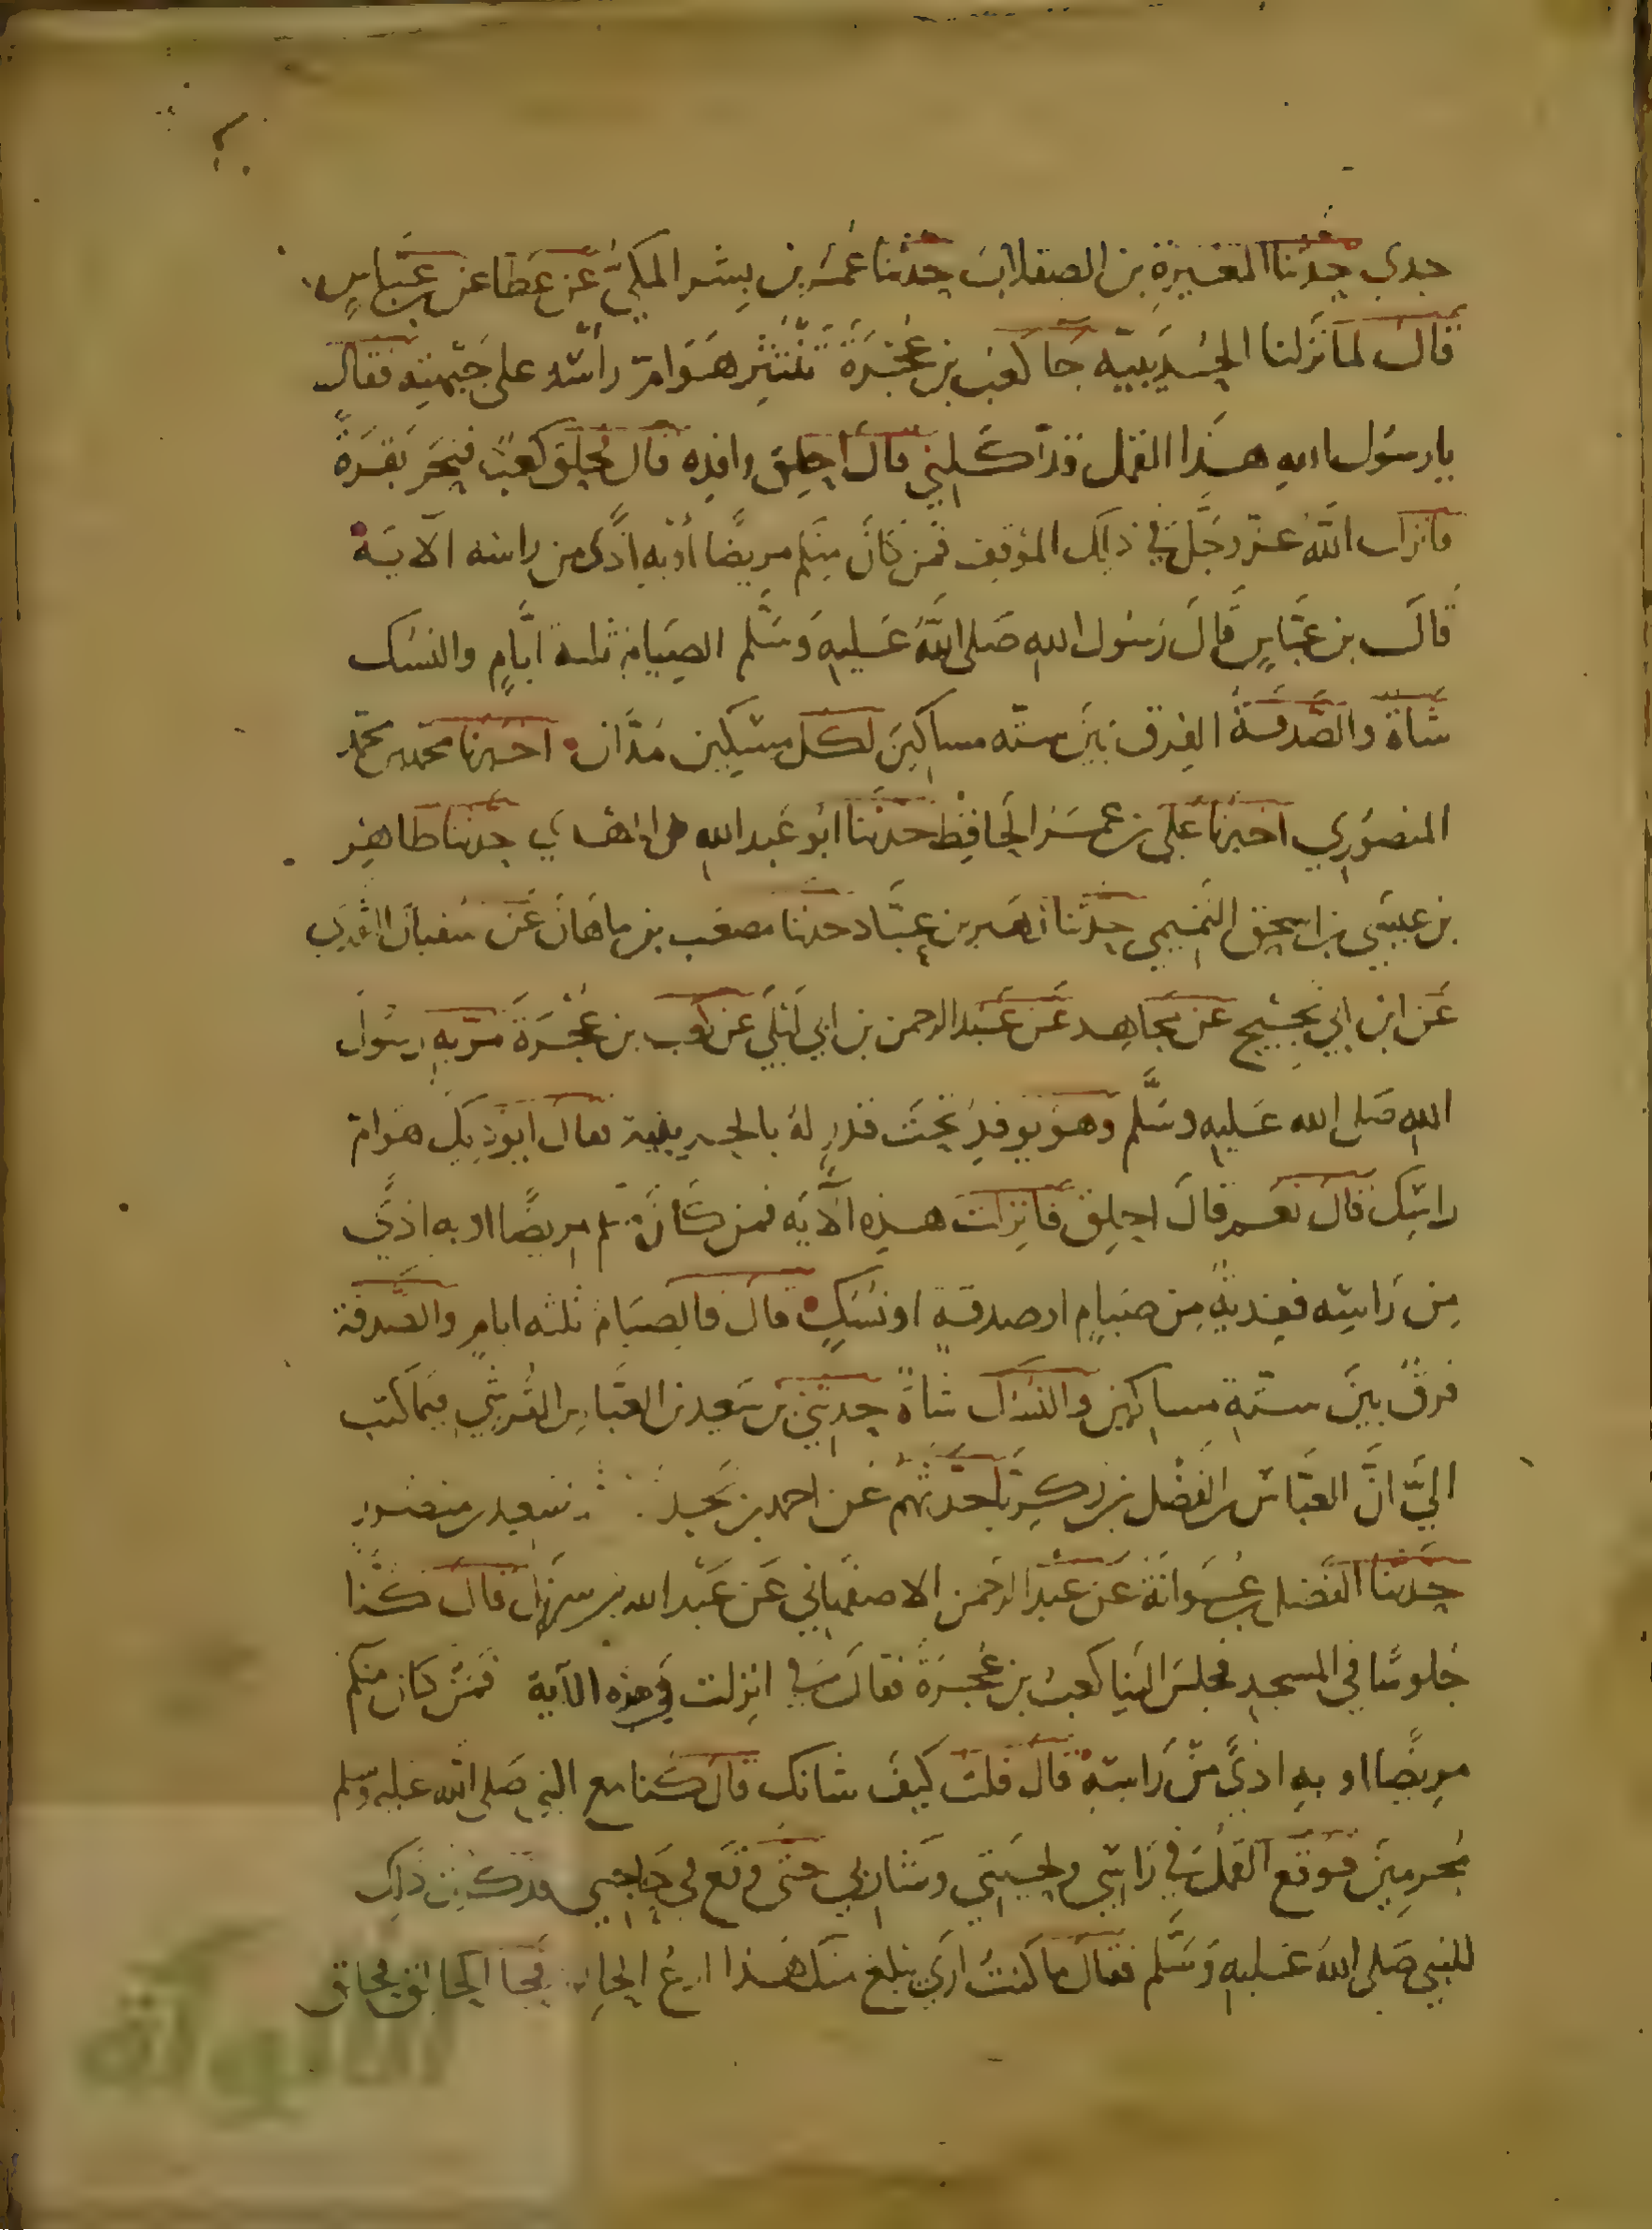 جدي حدثنا المغيرة بن الصقلاب حدثنا عمر بن بشر المكيّ عن عطا عن بن عبّاسٍ
قال لما نزلنا الحُديبيّة جا كعب بن عُجْرَة تَنْتَثِر هَوَامّ رأسه على جَبْهته فقال
يا رسول الله هذا القمل قد اكلني قال احلق وافده قال فحلق كعب فنحَر بَقرَةً
فانزل اللّه عزّ وجَلّ في ذلك الموقف فمن كانَ منكم مريضًا أو به اذًى من راسه الآية
قال بن عبَّاسٍ قالَ رَسُول اللهِ صَلى اللَّهُ عَليهِ وَسَلَّم الصِيَام ثلثة ايَّامٍ والنسُك
شاة والصَّدقةُ الفرق بيَن ستّه مساكينَ لكل مسكين مُدَّان اخبرنا محمد بن محمد
المنصُوري اخبرنا علي بن عمر الحافِظ حدثنا ابُو عَبد الله حدثنا طاهِر
بن عيسَى بن اسحق التميمي حدّثنا زهير بن عبّاد حدثنا مصعَب بن ماهَان عَن سُفيان الثوري
عَن ابن ابي نجيح عن مجاهد عَن عَبد الرحمن بن ابي ليْلَى عن كعب بن عُجْرَة مرّ به رسُول
اللهِ صَلى الله عَليهِ وسَلَّم وهو يوقد تحت قدرٍ لهُ بالحديبية فقال ايوذيك هوامّ
راسِك قالَ نعم قالَ احلِق فانزلت هذِه الآيَه فمن كَانَ منكم مريضًا او به اذىً
مِن رَاسِه ففِديةٌ مِن صيَامٍ او صدقةٍ او نسُكٍ قال فالصيَام ثلثه ايامٍ والصَّدقة
فرقٌ بينَ ستّةِ مساكين والنسُك شاة حدثني بن سَعيد بن العبَّاس القُرشي فيما كتب
اليَّ انَّ العبّاس بن الفَضْل بن زكريّا حدّثهم عَن احمد بن نجدة سعيد بن منصور
حدثنا ابو عَوانَة عَن عَبد الرحمن الاصفهاني عَن عَبد الله بن قالَ كنّا
جُلوسًا في المسجد فجلسَ الينا كعبُ بن عُجرَة فقالَ فيّ انزلت هذه الآية فَمَنْ كان منكم
مريضًا او بهِ اذىً مّن رَاسِهِ قال قلت كيفَ شانك قال كنا مع النبي صَلى الله عليه وسلم
مُحرمينَ فوقع القملُ في رَاسي ولحيَتي وشاربي حتى وقَع في حَاجبي فذكرتُ ذلك
للنبي صَلى اللهُ عَليهِ وَسَلَّم فقالَ ما كنتُ ارى بلغ منك هذا ادعُ الحالق فجا الحالق فحلق